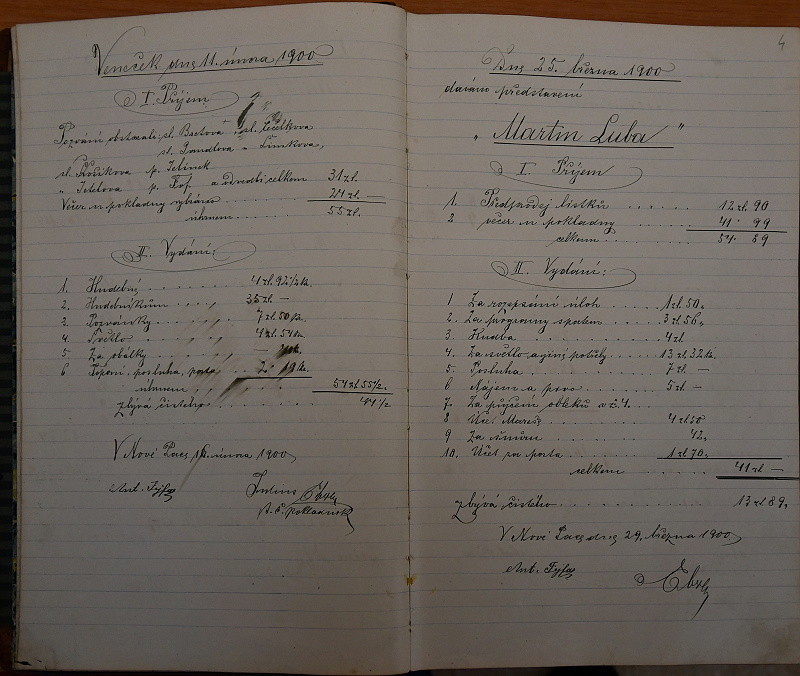 Veneček dne 11. února 1900
I. Příjem
Pozvání obstarali: sl. Bartová, sl.
sl. a Šimkova,
sl. p. Jelínek
" p. a odvedli celkem 31 zl.
Večer u pokladny vybráno 24 zl. —
úhrnem 55 zl.
II. Vydání:
1. Hudební 4 zl. 92 1/2 kr.
2. Hudebníkům 35 zl. —
3. Pozvánky 7 zl. 50 kr.
4. Světlo 4 zl. 54 kr.
5. Za obálky
6 Topení, posluha, pošta 2. 19 kr.
úhrnem 54 zl. 55 1/2.
zbývá čistého 44 1/2
V Nové Pace, února 1900
Ant. Fejfar Julius
t. č. pokladník
4
Dne 25. března 1900
dáváno představení
„Martin Luba"
I. Příjem
1. Předprodej lístků 12 zl. 90
2 večer u pokladny 41. 99
celkem 54. 89
II. Vydání:
1 Za rozepsání úloh 1 zl. 50.
2. Za programy 3 zl. 56.
3. Hudba 4 zl.
4. Za světlo a jiné potřeby 13 zl. 32 kr.
5. Posluha 7 zl. —
6 Nájem a pivo 5 zl. —
7. Za půjčení obleků a č. 4.
8 Účt. Mareš 4 zl. 50
9 Za 42.
10. Účet za poštu 1 zl. 70.
celkem 41 zl. —
zbývá čistého 13 zl. 89.
V Nové Pace dne 29. března 1900.
Ant. Fejfar